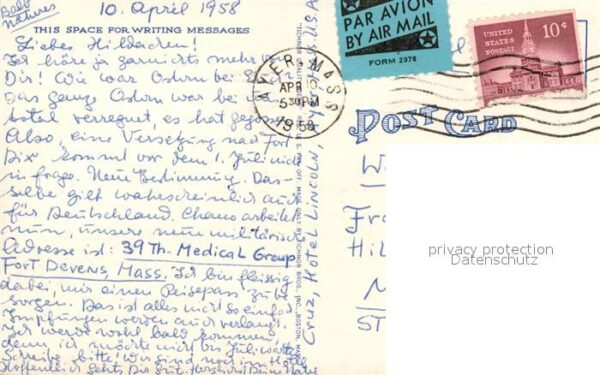 Balb
Natures
10. April 1958
THIS SPACE FOR WRITING MESSAGES
Liebes Hildachen!
Ich höre ja garnichts mehr
Dir! Wie war Ostern bei Euch?
Das ganze Ostern war bei
total verregnet, es hat gegossen
Also, eine Versetzung nach Fort
Dix kommt vor dem 1. Juli nicht
in frage. Neue Bestimmung. Das-
selbe gilt wahrscheinlich auch
für Deutschland. Chemo arbeitet
nun, unsere neue militärische
Adresse ist: 39 Th. Medical Group
Fort Devens, Mass. Ich bin fleissig
dabei, mir einen Reisepass zu be-
sorgen. Das ist alles nicht so einfach
Impfungen werden auch verlangt.
Ich werde wohl bald kommen,
denn ich möchte nicht bis Juli warten
Schreibe bitte! Wir sind noch im Hotel
Hoffentlich gehts Dir gut. Herzlichst Deine
Cruz, Hotel Lincoln, Ayer, Mass. USA
PAR AVION
BY AIR MAIL
FORM 2978
AYER, MASS
APR 10
5 30 PM
1958
UNITED STATES
POSTAGE
10¢
POST CARD
Fra
Hil
ST
privacy protection
Datenschutz